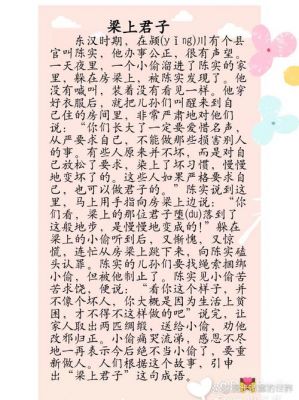 梁上君子
东汉时期，在颍(yǐng)川有个县
官叫陈实，他办事公正，很有声望。
一天夜里，一个小偷溜进了陈实的家
里，躲在房梁上，被陈实发现了。他
没有喊叫，装着没有看见一样。他穿
好衣服后，就把儿孙们叫醒来到自
己住的房间里，非常严肃地对他们
说：“你们长大了一定要爱惜名声，
从严要求自己，不能做那些损害别人
的事，有些人原来并不坏，而是对自
己放松了要求，染上了坏习惯，慢慢
地变坏了的。这些人如果严格要求自
己，也可以做君子的。”陈实说到这
里，马上用手指向房梁上边说：“你
们看，梁上的那位君子堕(du)落到了
这般地步，是慢慢地变成的！”躲在
梁上的小偷听到后，又惭愧，又惊
慌，连忙从房梁上跳下来，向陈实磕
头认罪。陈实的儿孙们要找绳索捆绑
小偷，但被他制止了。陈实见小偷苦
苦求饶，便说：“看你这个样子，并
不像个坏人，你大概是因为生活上贫
困，才不得不这样做的吧”说完，让
家人取出两匹绸缎，送给小偷，劝他
改邪归正。小偷痛哭流涕，感恩不尽
地一再表示今后绝不当小偷了，要重
新做人。人们根据这个故事，引申
出“梁上君子”这句成语。